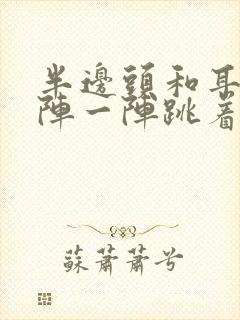 半邊頭和耳
陣一陣跳着
蘇蕭蕭兮